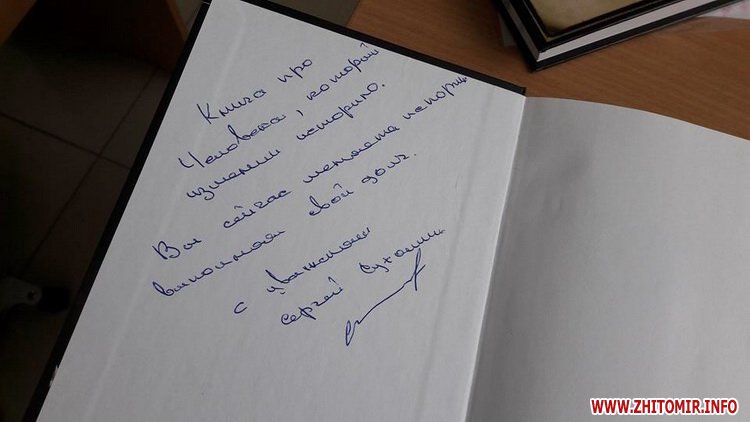 Книга про
Человека, который
изменил историю.
Вы сейчас меняете историю
выполняя свой долг.
с уважением
Сергей Сухомлин
WWW.ZHITOMIR.INFO